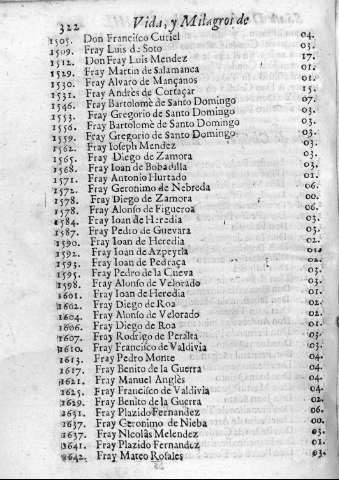 322 Vida, y Milagros de
1505. Don Francisco Curiel 04.
1509. Fray Luis de Soto 03.
1512. Don Fray Luis Mendez 17.
1529. Fray Martin de Salamanca 01.
1530. Fray Alvaro de Mançanos 01.
1531. Fray Andrès de Cortaçar 15.
1546. Fray Bartolomè de Santo Domingo 07.
1553. Fray Gregorio de Santo Domingo 03.
1556. Fray Bartolomè de Santo Domingo 03.
1559. Fray Gregorio de Santo Domingo 03.
1562. Fray Ioseph Mendez 03.
1565. Fray Diego de Zamora 03.
1568. Fray Ioan de Bobadilla 03.
1571. Fray Antonio Hurtado 01.
1572. Fray Geronimo de Nebreda 06.
1578. Fray Diego de Zamora 00.
1578. Fray Alonso de Figueroa 06.
1584. Fray Ioan de Heredia 03.
1587. Fray Pedro de Guevara 03.
1590. Fray Ioan de Heredia 02.
1592. Fray Ioan de Azpeytia 01.
1593. Fray Ioan de Pedraça 02.
1595. Fray Pedro de la Cueva 03.
1598. Fray Alonso de Velorado 03.
1601. Fray Ioan de Heredia 01.
1602. Fray Diego de Roa 02.
1604. Fray Alonso de Velorado 02.
1606. Fray Diego de Roa 01.
1607. Fray Rodrigo de Peralta 03.
1610. Fray Francisco de Valdivia 03.
1613. Fray Pedro Monte 04.
1617. Fray Benito de la Guerra 04.
1621. Fray Manuel Anglès 04.
1625. Fray Francisco de Valdivia 04.
1629. Fray Benito de la Guerra 02.
1631. Fray Plazido Fernandez 06.
1637. Fray Geronimo de Nieba 00.
1637. Fray Nicolàs Melendez 03.
1641. Fray Plazido Fernandez 01.
1642. Fray Mateo Rosales 03.